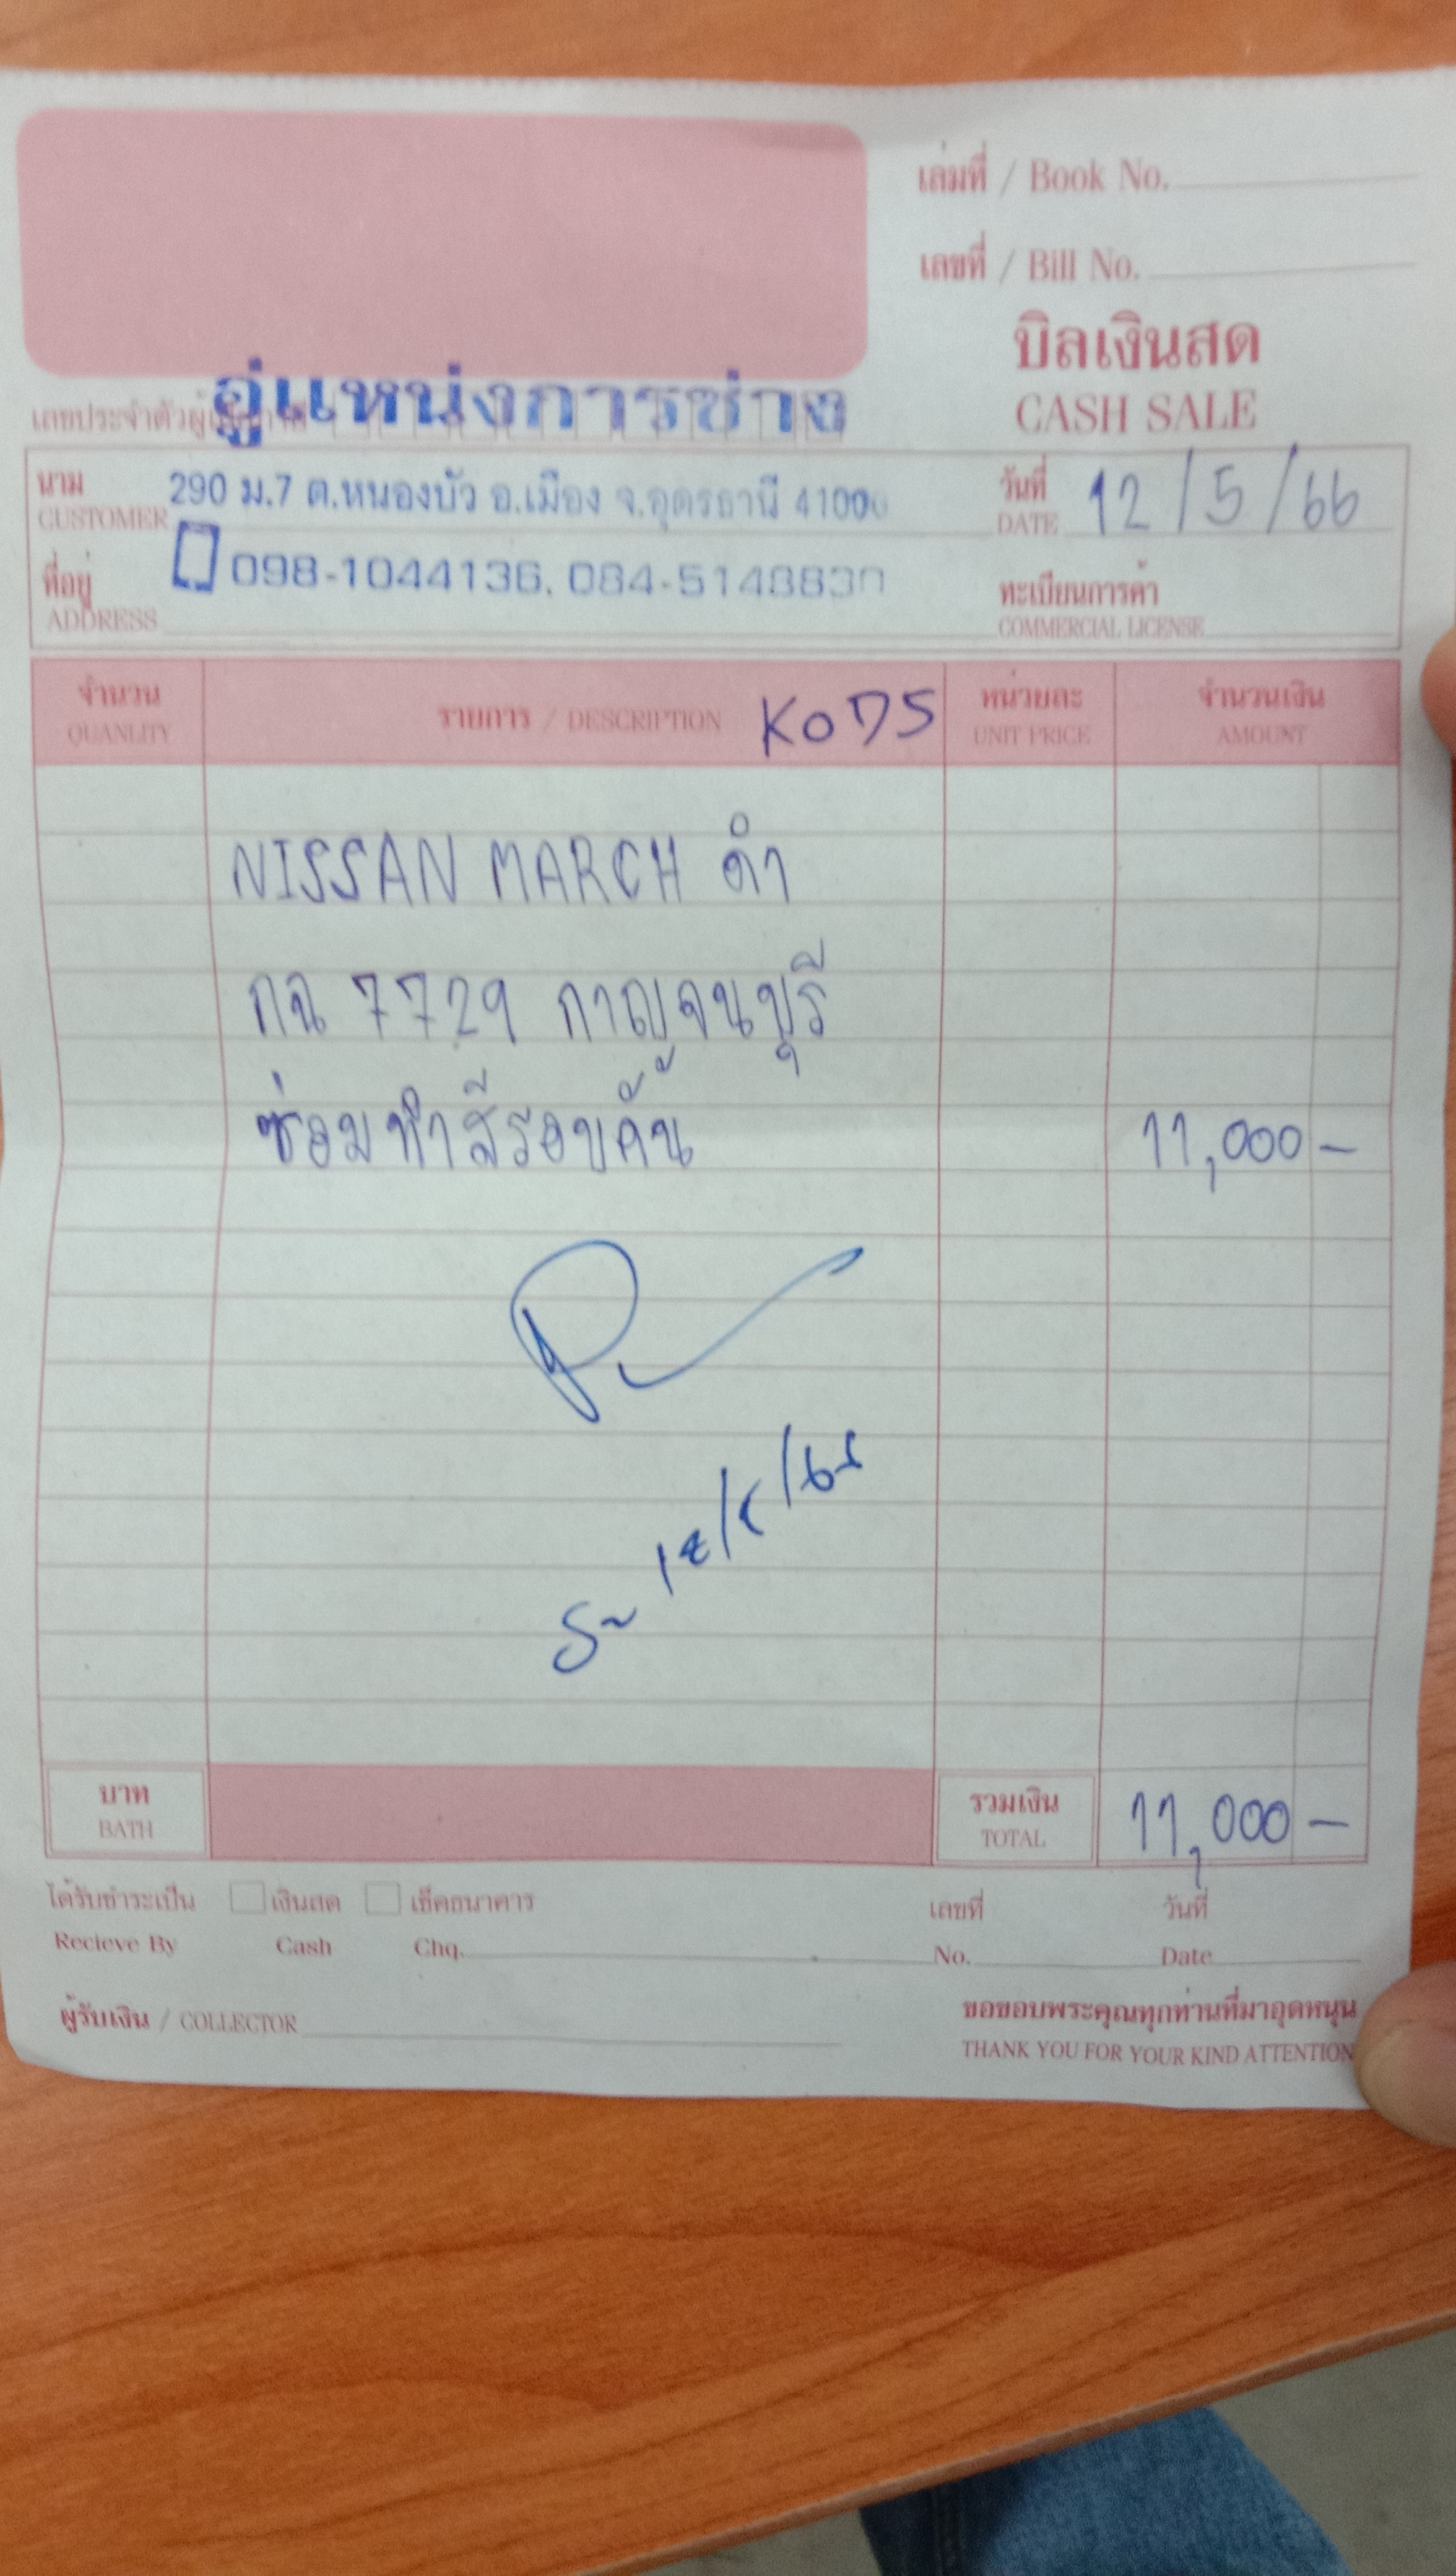 เล่มที่ / Book No.
เลขที่ / Bill No.
บิลเงินสด
CASH SALE
อู่แหน่งการช่าง
เลขประจำตัวผู้
นาม 290 ม.7 ต.หนองบัว อ.เมือง จ.อุดรธานี 41000 วันที่ 12/5/66
CUSTOMER DATE
ที่อยู่ 098-1044136, 084-5148830 ทะเบียนการค้า
ADDRESS COMMERCIAL LICENSE
จำนวน รายการ / DESCRIPTION KODS หน่วยละ จำนวนเงิน
QUANLITY UNIT PRICE AMOUNT
NISSAN MARCH ดำ
กฉ 7729 กาญจนบุรี
ซ่อมทำสีรอบคัน 11,000 -
บาท รวมเงิน 11,000 -
BATH TOTAL
ได้รับชำระเป็น เงินสด เช็คธนาคาร เลขที่ วันที่
Recieve By Cash Chq. No. Date
ผู้รับเงิน / COLLECTOR ขอขอบพระคุณทุกท่านที่มาอุดหนุน
THANK YOU FOR YOUR KIND ATTENTION